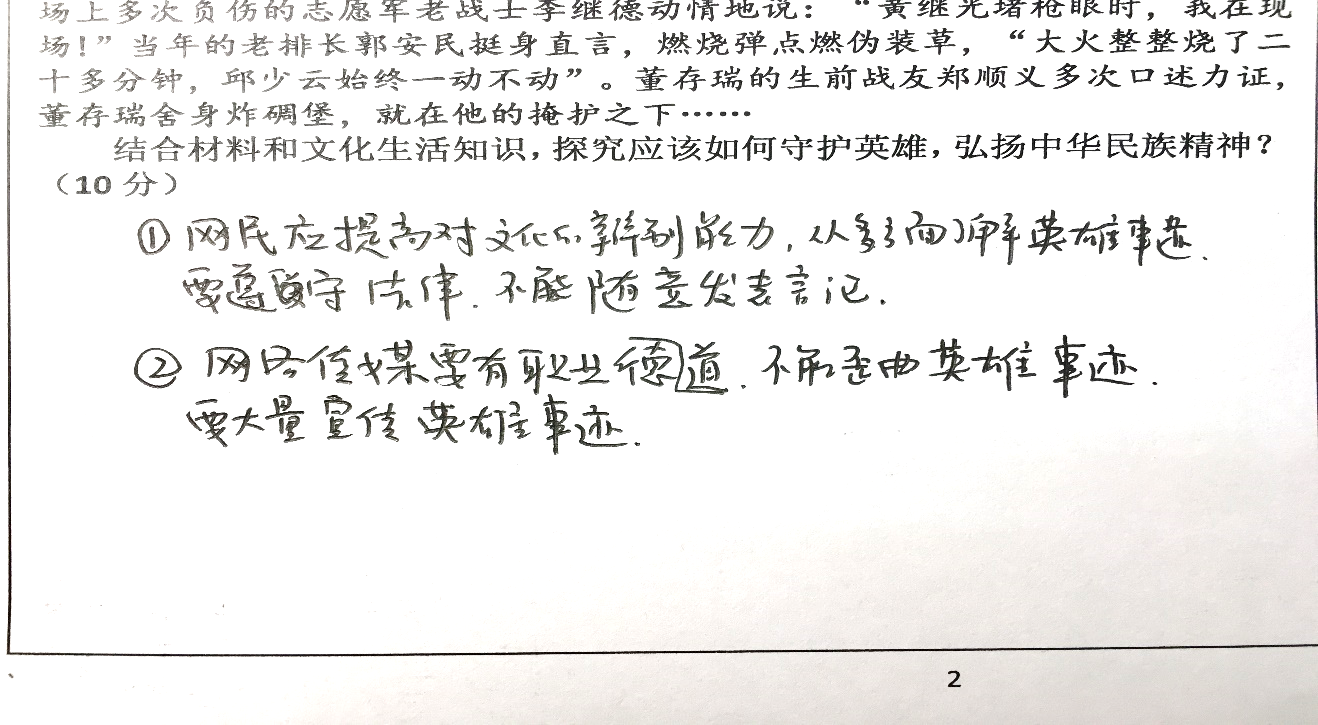 场上多次负伤的志愿军老战士李继德动情地说：“黄继光堵枪眼时，我在现
场！”当年的老排长郭安民挺身直言，燃烧弹点燃伪装草，“大火整整烧了二
十多分钟，邱少云始终一动不动”。董存瑞的生前战友郑顺义多次口述力证，
董存瑞舍身炸碉堡，就在他的掩护之下……
结合材料和文化生活知识，探究应该如何守护英雄，弘扬中华民族精神？
（10 分）
①网民应提高对文化的辨别能力，从多方面了解英雄事迹.
要遵守法律.不能随意发表言记.
②网络传媒要有职业德道.不能歪曲英雄事迹.
要大量宣传英雄事迹.
2